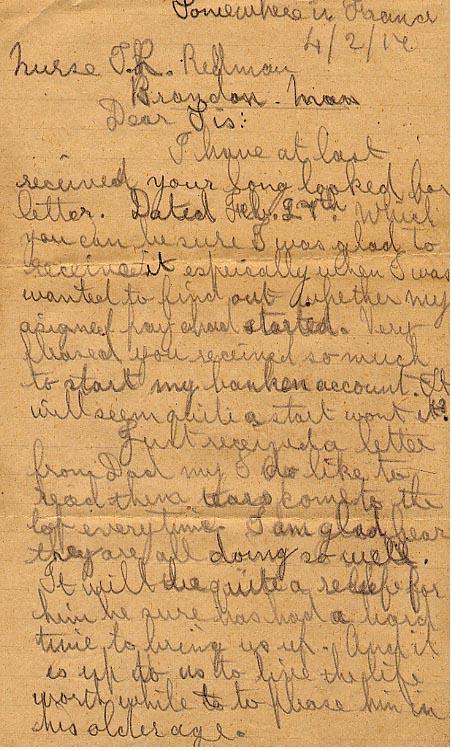 Somewhere in France
4/2/1
Nurse T.R. Redman
Brandon. Man
Dear Sis:
I have at last
received your long looked for
letter. Dated Feb. 27th. Which
you can be sure I was glad to
receive it espericially when I was
wanted to find out whether my
asigned pay ahad started. Very
pleased you received so much
to start my banken account. It
will seem quite a start wont it?
Just received a letter
from Dad my I do like to
read them tears come to the
top everytime. I am glad hear
they are all doing so well.
It will be quite a relief for
him he sure has had a hard
time to bring us up. And it
is up to us to live the life
worth while to to please him in
his older age.